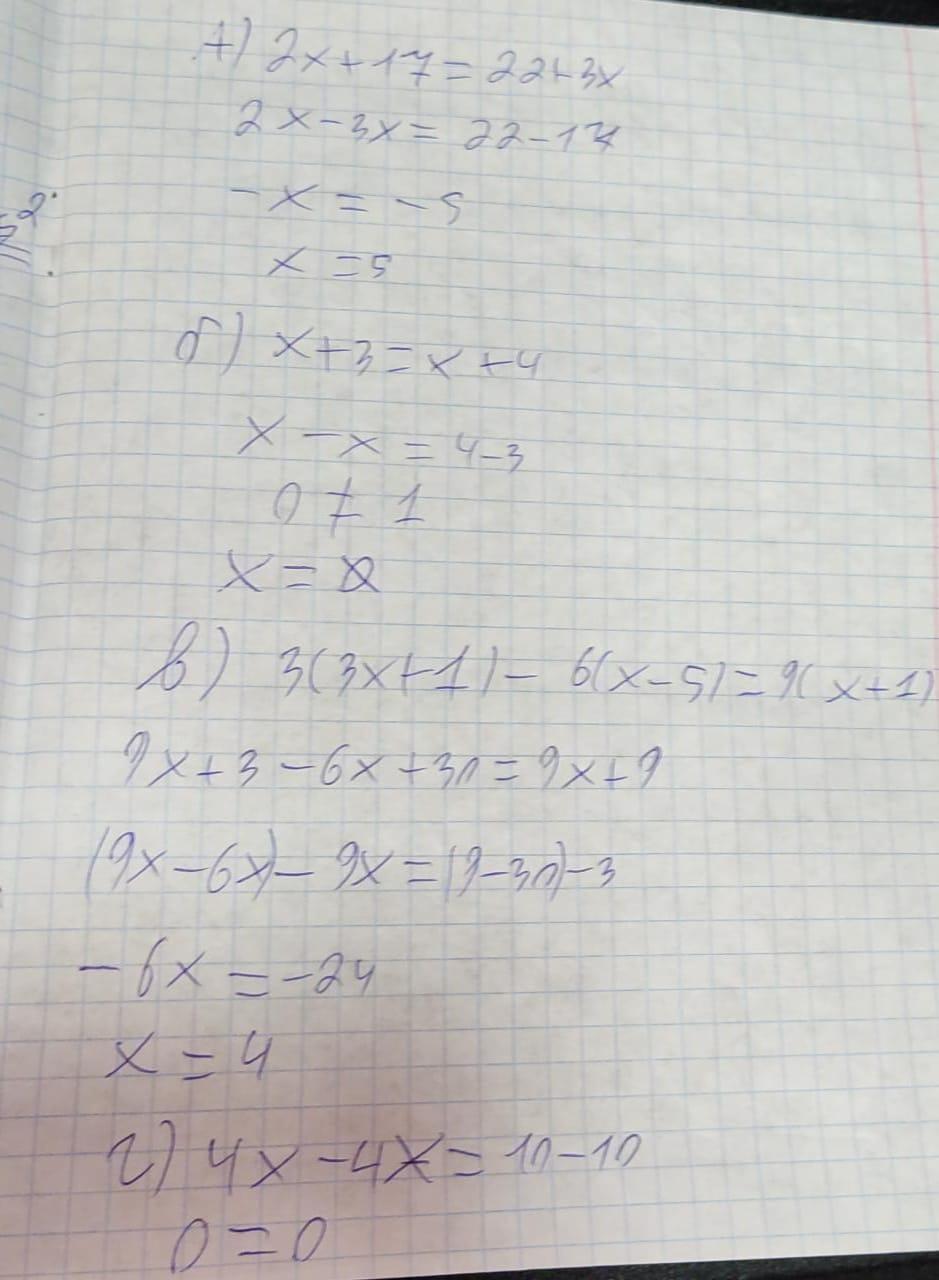 А) 2x+17=22+3x
2x-3x=22-17
-x=-5
x=5
б) x+3=x+4
x-x=4-3
0≠1
x=∅
в) 3(3x+1)-6(x-5)=9(x+1)
9x+3-6x+30=9x+9
(9x-6x)-9x=(9-30)-3
-6x=-24
x=4
г) 4x-4x=10-10
0=0